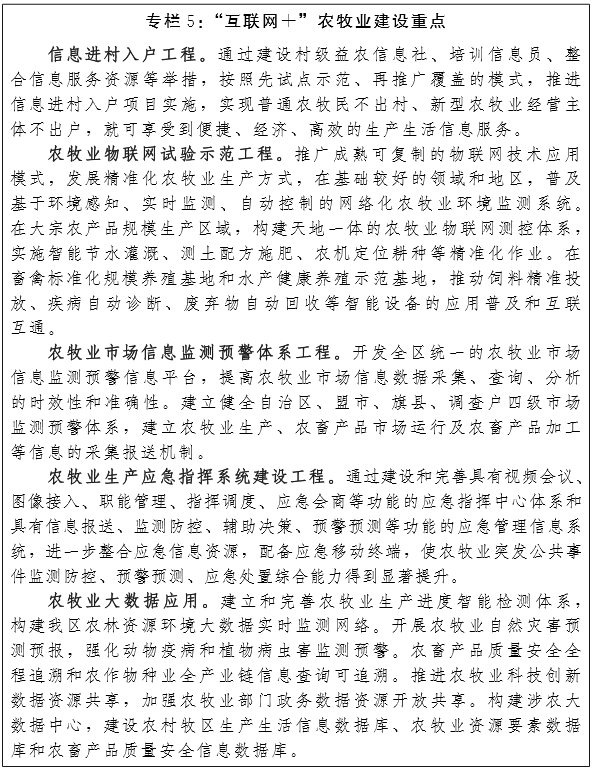 专栏 5：“互联网＋”农牧业建设重点
信息进村入户工程。通过建设村级益农信息社、培训信息员、整
合信息服务资源等举措，按照先试点示范、再推广覆盖的模式，推进
信息进村入户项目实施，实现普通农牧民不出村、新型农牧业经营主
体不出户，就可享受到便捷、经济、高效的生产生活信息服务。
农牧业物联网试验示范工程。推广成熟可复制的物联网技术应用
模式，发展精准化农牧业生产方式，在基础较好的领域和地区，普及
基于环境感知、实时监测、自动控制的网络化农牧业环境监测系统。
在大宗农产品规模生产区域，构建天地一体的农牧业物联网测控体系，
实施智能节水灌溉、测土配方施肥、农机定位耕种等精准化作业。在
畜禽标准化规模养殖基地和水产健康养殖示范基地，推动饲料精准投
放、疾病自动诊断、废弃物自动回收等智能设备的应用普及和互联
互通。
农牧业市场信息监测预警体系工程。开发全区统一的农牧业市场
信息监测预警信息平台，提高农牧业市场信息数据采集、查询、分析
的时效性和准确性。建立健全自治区、盟市、旗县、调查户四级市场
监测预警体系，建立农牧业生产、农畜产品市场运行及农畜产品加工
等信息的采集报送机制。
农牧业生产应急指挥系统建设工程。通过建设和完善具有视频会议、
图像接入、职能管理、指挥调度、应急会商等功能的应急指挥中心体系和
具有信息报送、监测防控、辅助决策、预警预测等功能的应急管理信息系
统，进一步整合应急信息资源，配备应急移动终端，使农牧业突发公共事
件监测防控、预警预测、应急处置综合能力得到显著提升。
农牧业大数据应用。建立和完善农牧业生产进度智能检测体系，
构建我区农林资源环境大数据实时监测网络。开展农牧业自然灾害预
测预报，强化动物疫病和植物病虫害监测预警。农畜产品质量安全全
程追溯和农作物种业全产业链信息查询可追溯。推进农牧业科技创新
数据资源共享，加强农牧业部门政务数据资源开放共享。构建涉农大
数据中心，建设农村牧区生产生活信息数据库、农牧业资源要素数据
库和农畜产品质量安全信息数据库。